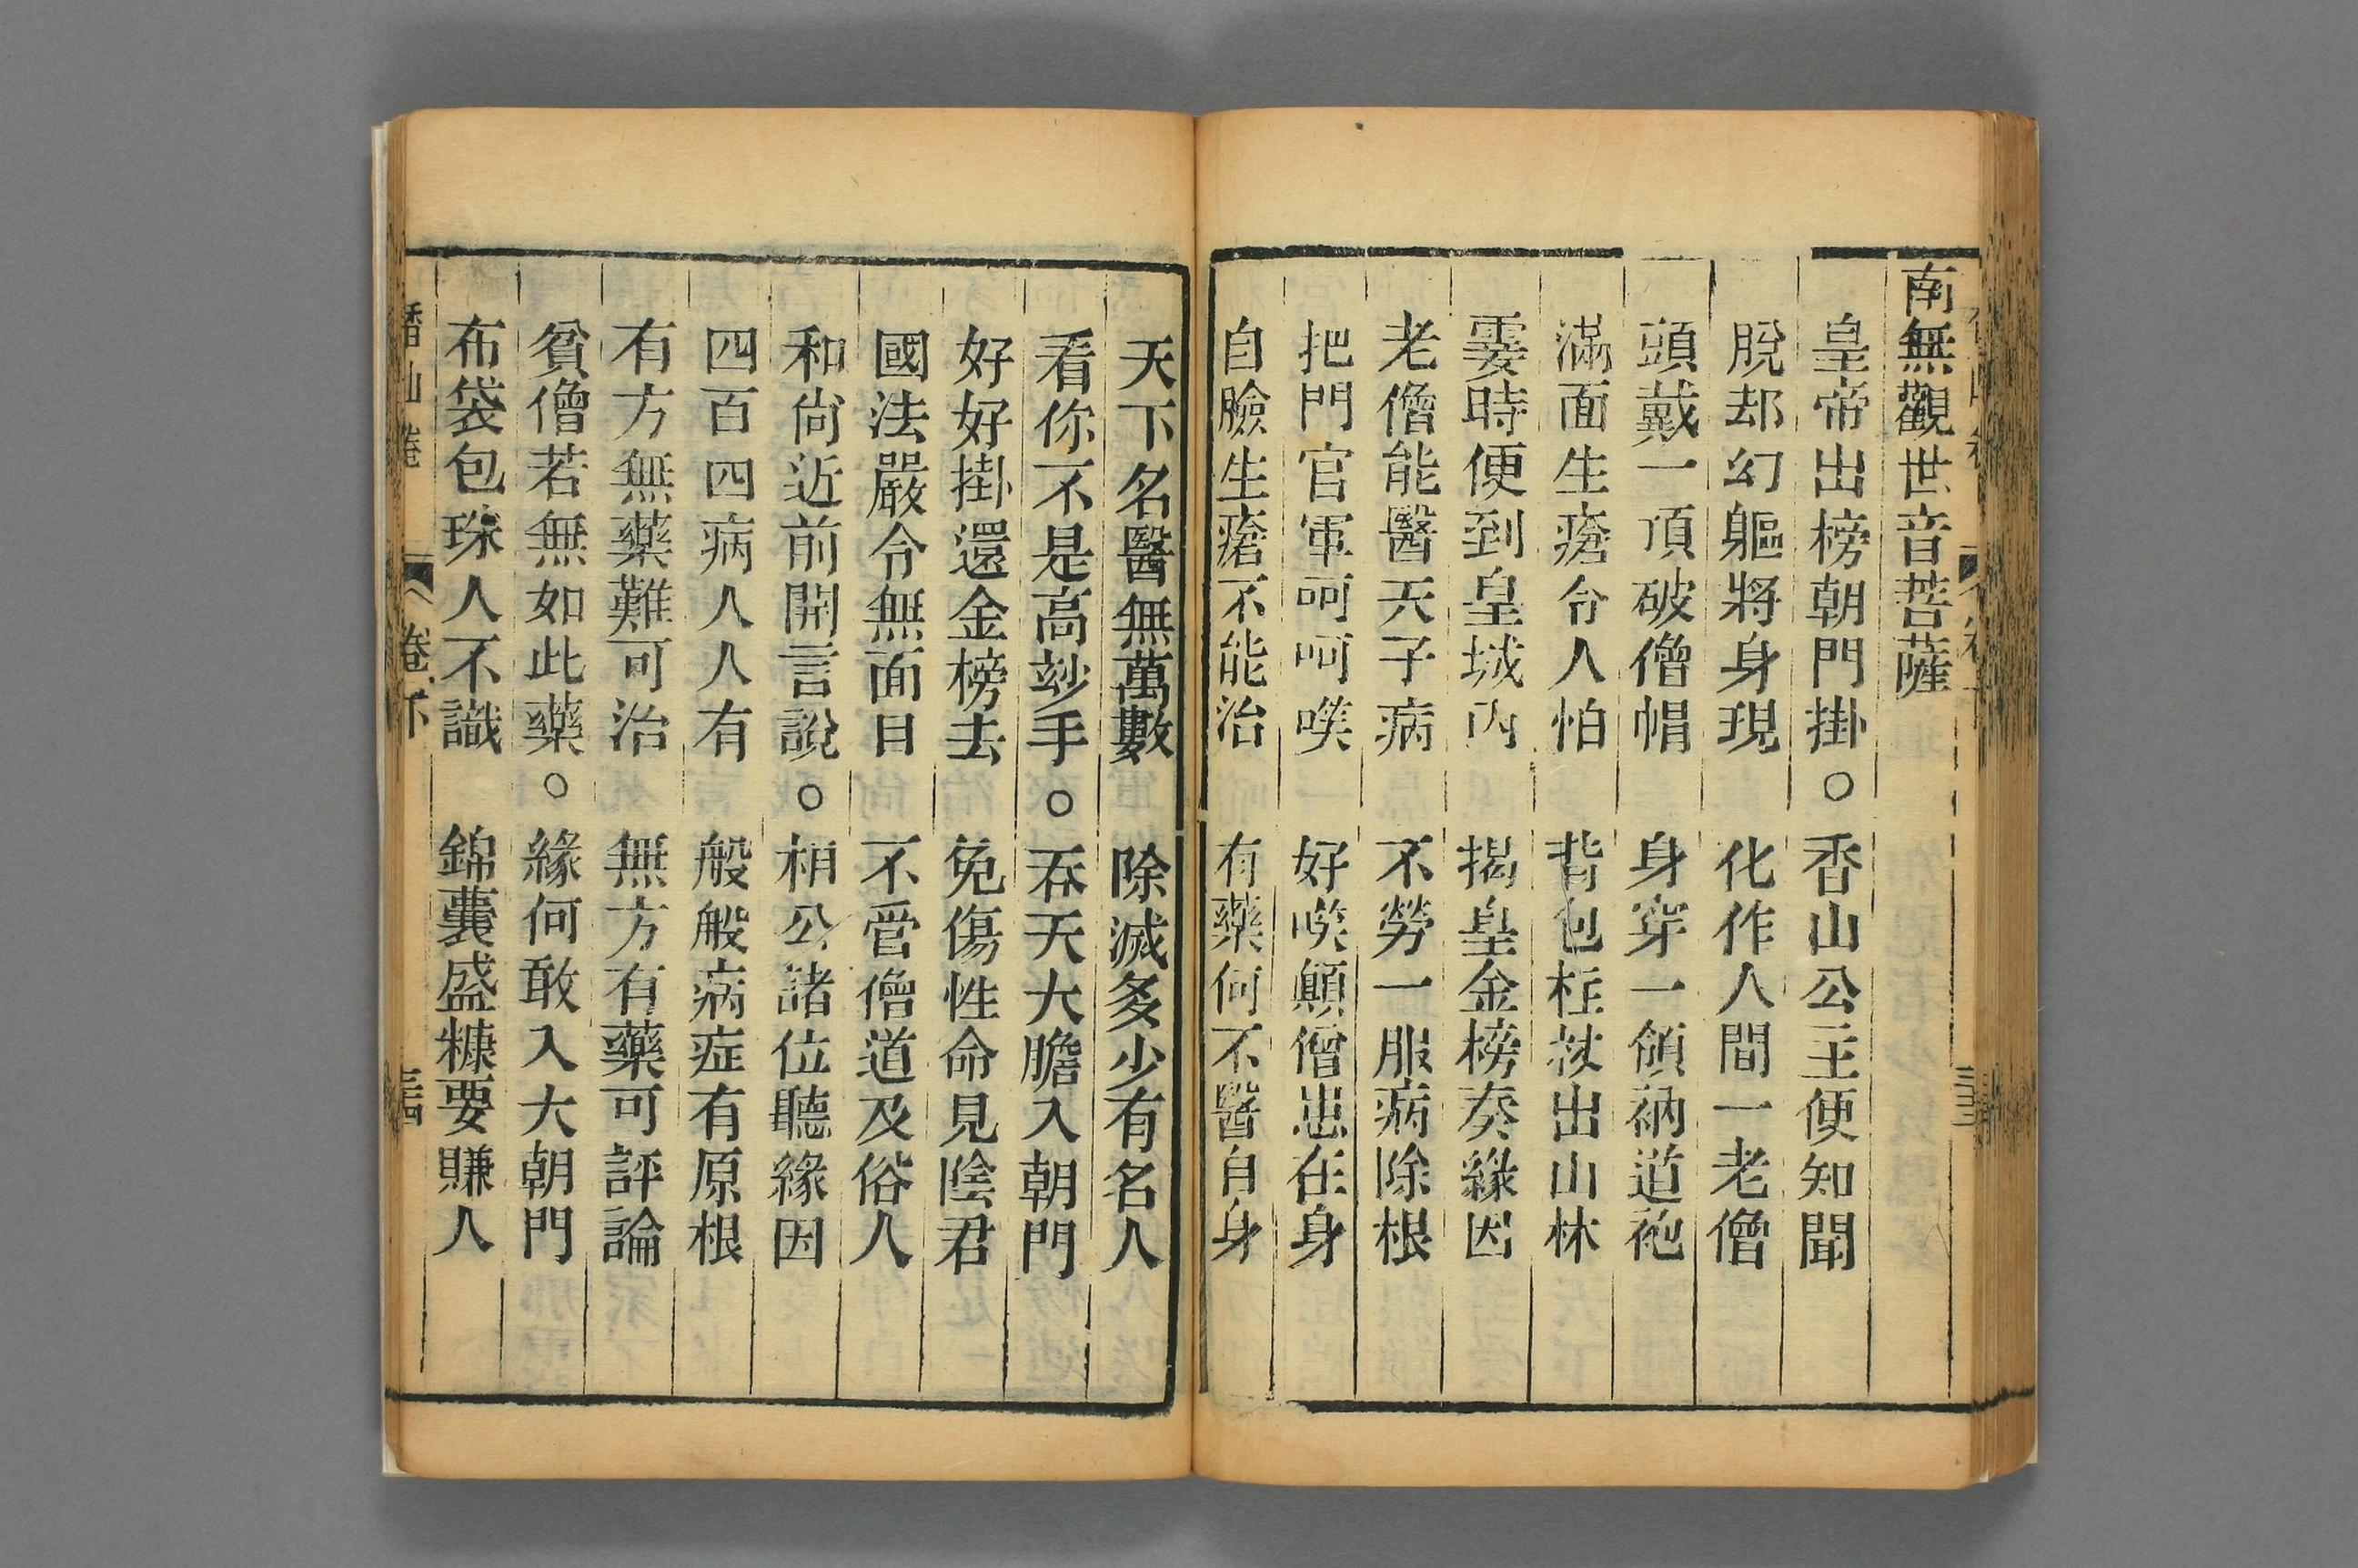 南無觀世音菩薩
皇帝出榜朝門掛。香山公主便知聞
脫却幻軀將身現 化作人間一老僧
頭戴一頂破僧帽 身穿一領衲道袍
滿面生瘡令人怕 背包柱杖出山林
霎時便到皇城內 揭皇金榜奏緣因
老僧能醫天子病 不勞一服病除根
把門官軍呵呵喫 好喫顛僧患在身
自臉生瘡不能治 有藥何不醫自身
天下名醫無萬數 除滅多少有名人
看你不是高玅手。吞天大膽入朝門
好好掛還金榜去 免傷性命見陰君
國法嚴令無面目 不管僧道及俗人
和尙近前開言說。相公諸位聽緣因
四百四病人人有 般般病症有原根
有方無藥難可治 無方有藥可評論
貧僧若無如此藥。緣何敢入大朝門
布袋包珠人不識 錦囊盛糠要賺人
卷下